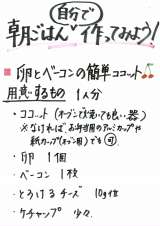 自分で
朝ごはん 作ってみよう!
■ 卵とベーコンの簡単ココット
用意するもの 1人分
・ココット(オーブンで焼いても良い器)
※なければ、お弁当用のアルミカップや
紙カップ(オーブン用)でも可。
・卵 1個
・ベーコン 1枚
・とろけるチーズ 10g位
・ケチャップ 少々